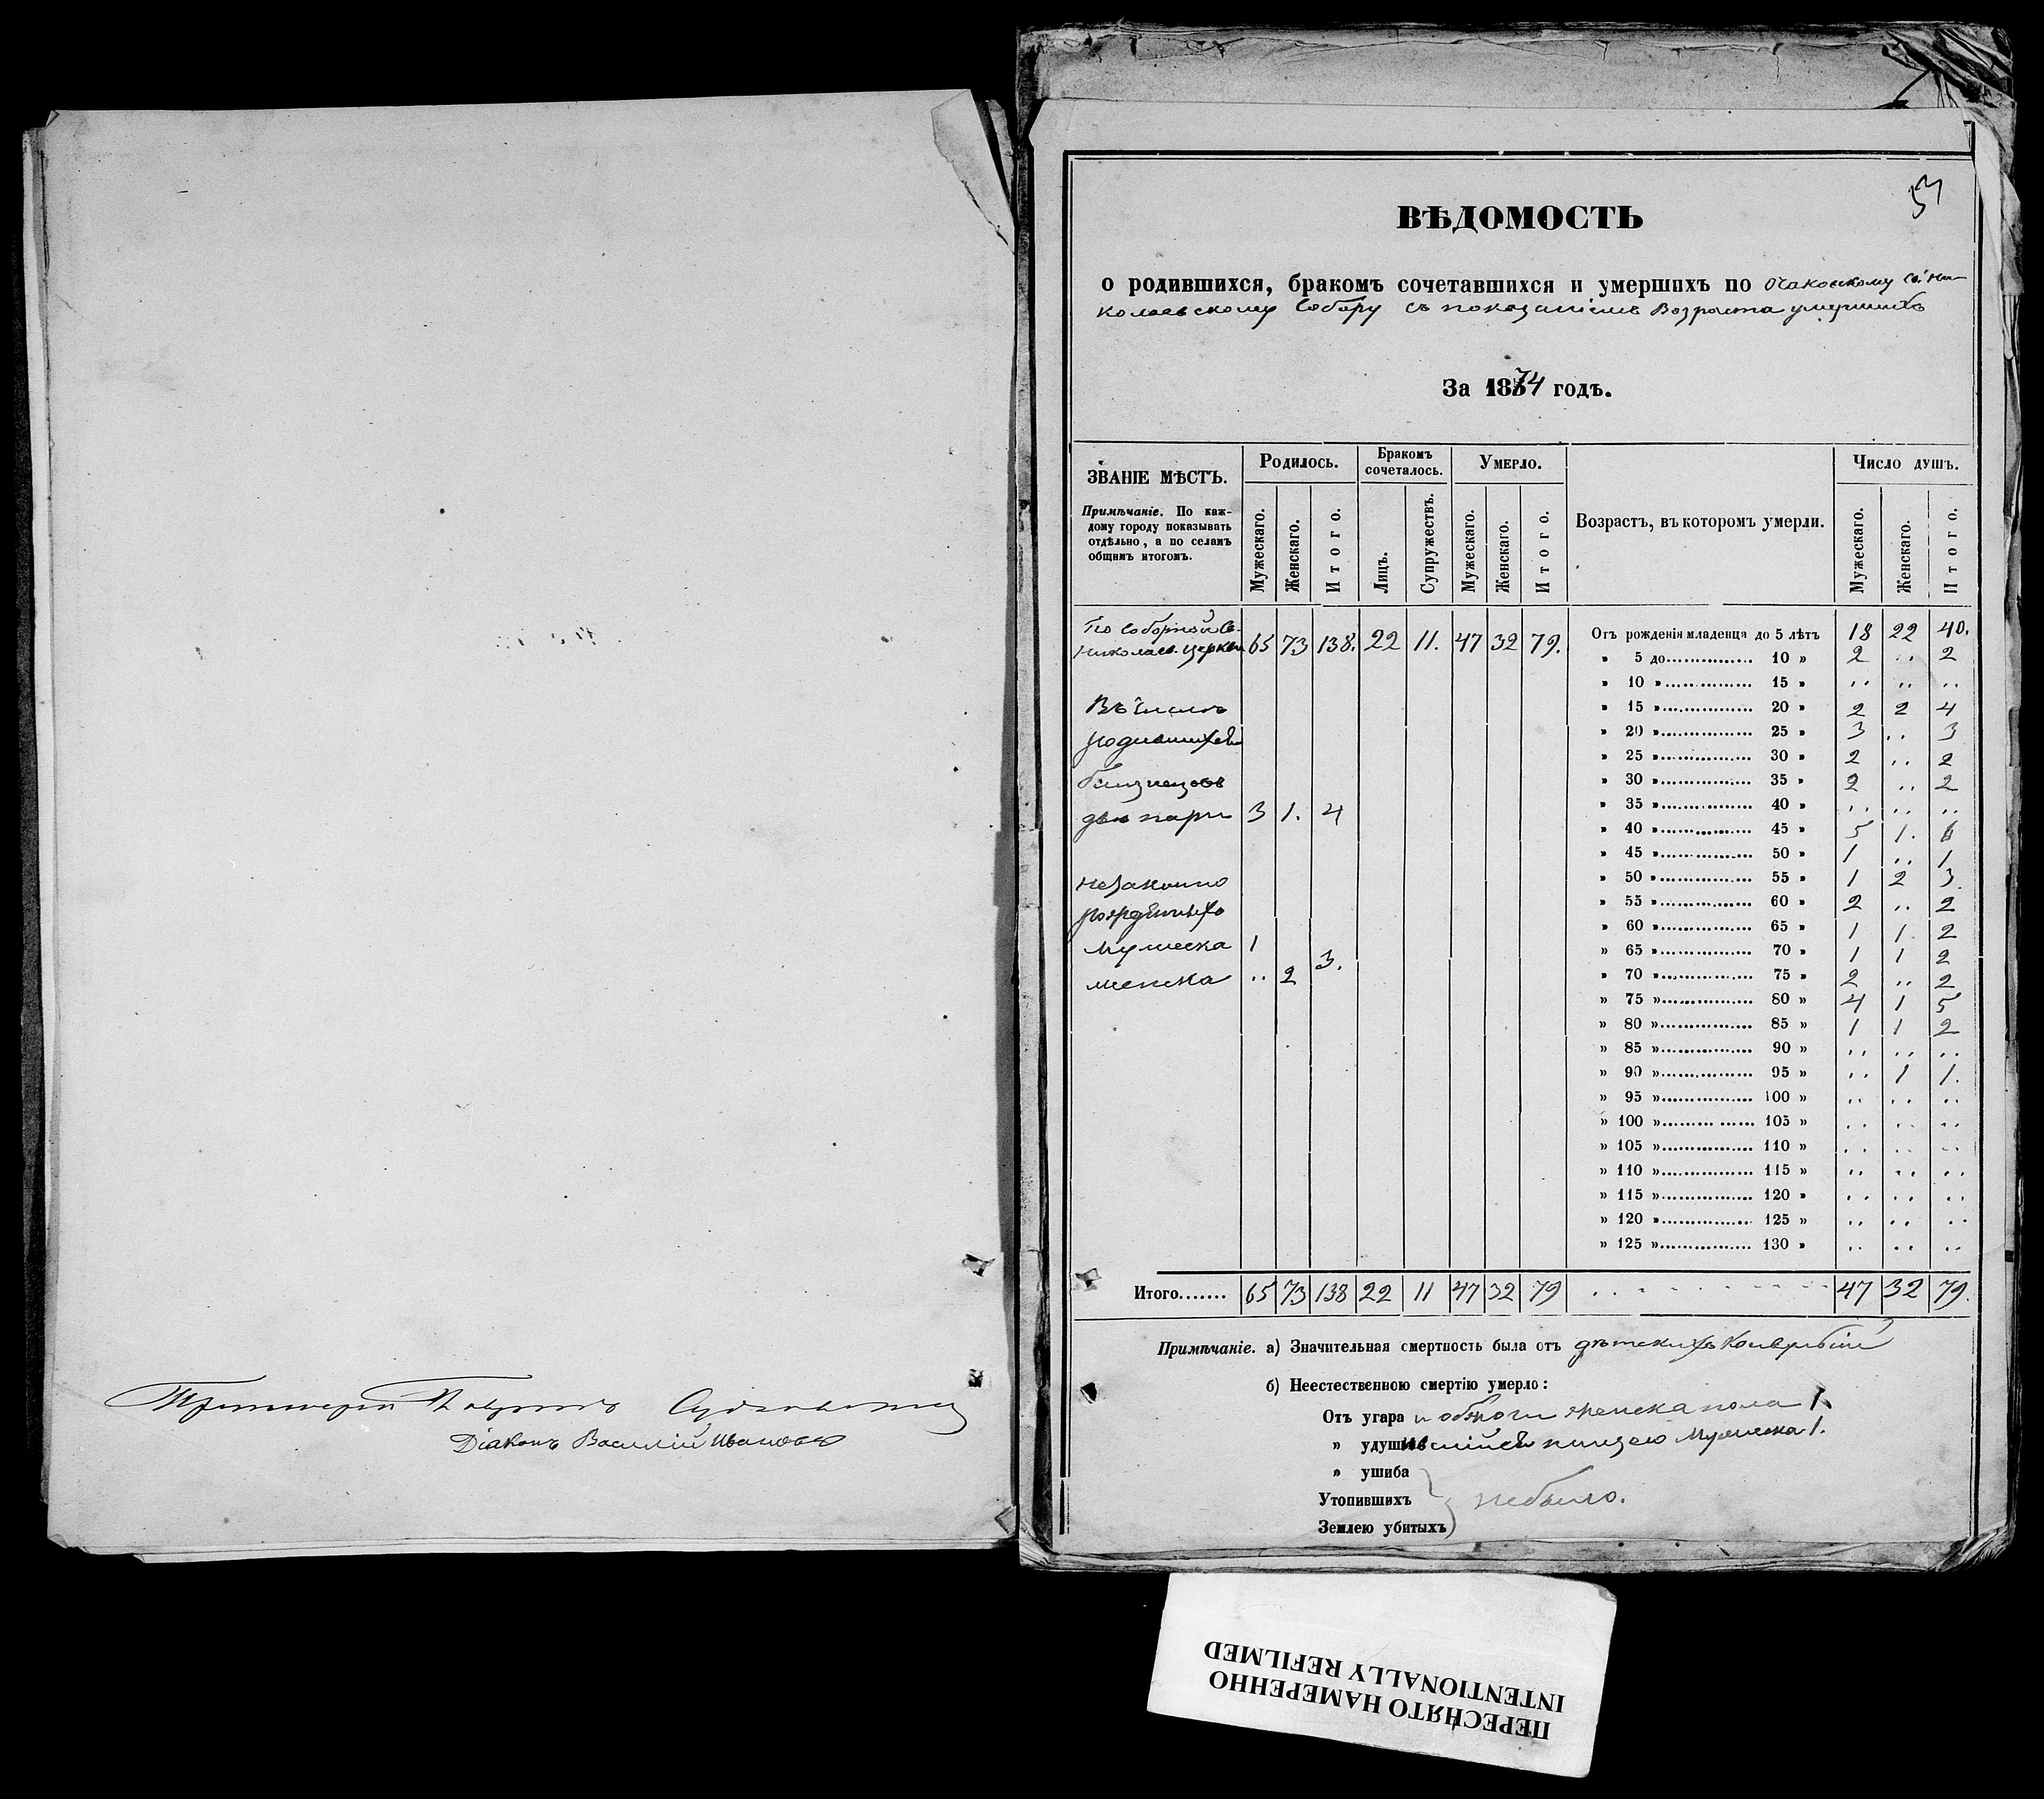 Протоіерей Гавріилъ Судковскій
Діаконъ Василій Ивановъ
53
ВѢДОМОСТЬ
о родившихся, бракомъ сочетавшихся и умершихъ по Очаковскому Св. Ни-
колаевскому Собору съ показаніемъ Возраста умершихъ
За 1874 годъ.
ЗВАНІЕ МѢСТЪ. Родилось. Бракомъ сочеталось. Умерло. Возрастъ, въ которомъ умерли. Число душъ.
Примѣчаніе. По каж-
дому городу показывать
отдѣльно, а по селамъ
общимъ итогомъ.
Мужескаго. Женскаго. Итого. Лицъ. Супружествъ. Мужескаго. Женскаго. Итого. Мужескаго. Женскаго. Итого.
По соборной Св.
Николаев. церкви 65 73 138. 22 11. 47 32 79.
Въ числѣ
родившихся
близнецовъ
двѣ пары 3 1. 4
незаконно
рожденныхъ
мужеска 1
женска .. 2 3.
Отъ рожденія младенца до 5 лѣтъ 18 22 40.
» 5 до ................ 10 » 2 .. 2
» 10 » ................ 15 » .. .. ..
» 15 » ................ 20 » 2 2 4
» 20 » ................ 25 » 3 .. 3
» 25 » ................ 30 » 2 .. 2
» 30 » ................ 35 » 2 .. 2
» 35 » ................ 40 » .. .. ..
» 40 » ................ 45 » 5 1. 6
» 45 » ................ 50 » 1 .. 1
» 50 » ................ 55 » 1 2 3.
» 55 » ................ 60 » 2 .. 2
» 60 » ................ 65 » 1 1 2
» 65 » ................ 70 » 1 1 2
» 70 » ................ 75 » 2 .. 2
» 75 » ................ 80 » 4 1 5
» 80 » ................ 85 » 1 1 2
» 85 » ................ 90 » .. .. ..
» 90 » ................ 95 » .. 1 1.
» 95 » ................ 100 » .. .. ..
» 100 » ................ 105 » .. .. ..
» 105 » ................ 110 » .. .. ..
» 110 » ................ 115 » .. .. ..
» 115 » ................ 120 » .. .. ..
» 120 » ................ 125 » .. .. ..
» 125 » ................ 130 » .. .. ..
Итого....... 65 73 138 22 11 47 32 79 47 32 79.
Примѣчаніе. а) Значительная смертность была отъ дѣтскихъ Конвульсій
б) Неестественною смертію умерло:
Отъ угара и обжоги женска пола 1.
» удушившійся пищею Мужеска 1.
» ушиба
Утопившихъ небыло.
Землею убитыхъ
ПЕРЕСНЯТО НАМЕРЕННО
INTENTIONALLY REFILMED